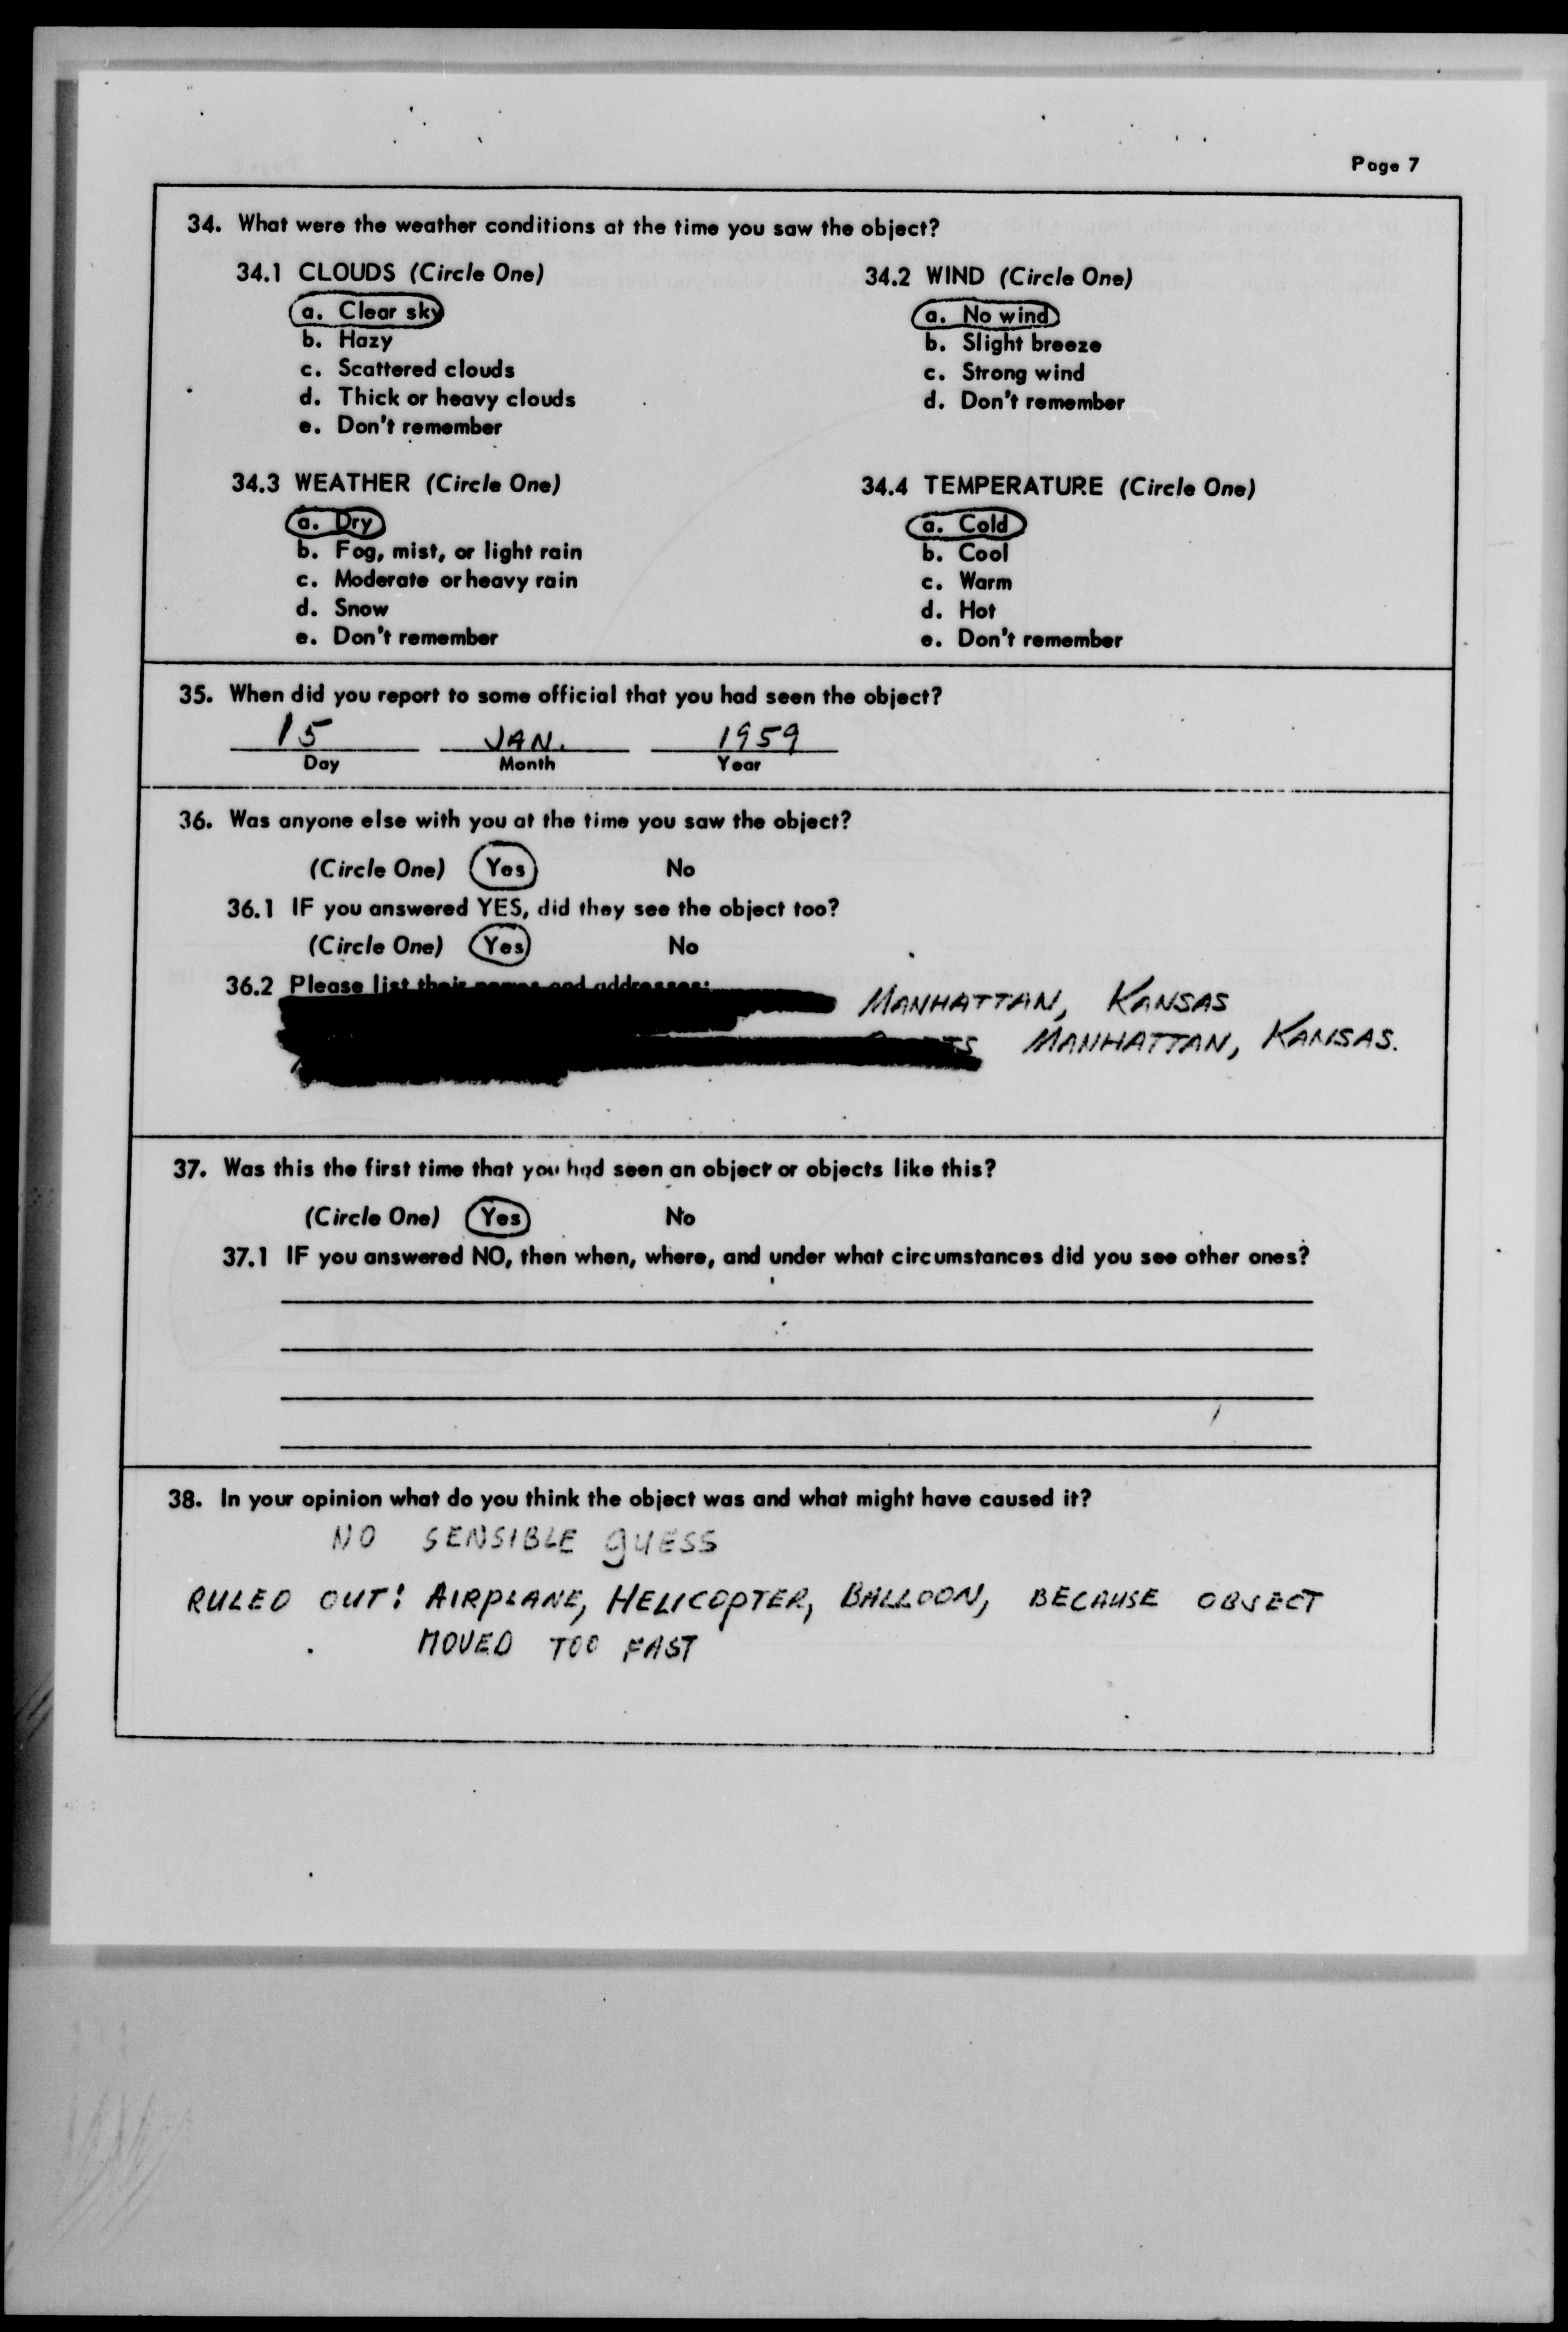 Page 7
34. What were the weather conditions at the time you saw the object?
34.1 CLOUDS (Circle One)
a. Clear sky
b. Hazy
c. Scattered clouds
d. Thick or heavy clouds
e. Don't remember
34.2 WIND (Circle One)
a. No wind
b. Slight breeze
c. Strong wind
d. Don't remember
34.3 WEATHER (Circle One)
a. Dry
b. Fog, mist, or light rain
c. Moderate or heavy rain
d. Snow
e. Don't remember
34.4 TEMPERATURE (Circle One)
a. Cold
b. Cool
c. Warm
d. Hot
e. Don't remember
35. When did you report to some official that you had seen the object?
15 JAN. 1959
Day Month Year
36. Was anyone else with you at the time you saw the object?
(Circle One) Yes No
36.1 IF you answered YES, did they see the object too?
(Circle One) Yes No
36.2 Please list their names and addresses:
MANHATTAN, KANSAS
MANHATTAN, KANSAS.
37. Was this the first time that you had seen an object or objects like this?
(Circle One) Yes No
37.1 IF you answered NO, then when, where, and under what circumstances did you see other ones?
38. In your opinion what do you think the object was and what might have caused it?
NO SENSIBLE GUESS
RULED OUT: AIRPLANE, HELICOPTER, BALLOON, BECAUSE OBJECT
MOVED TOO FAST